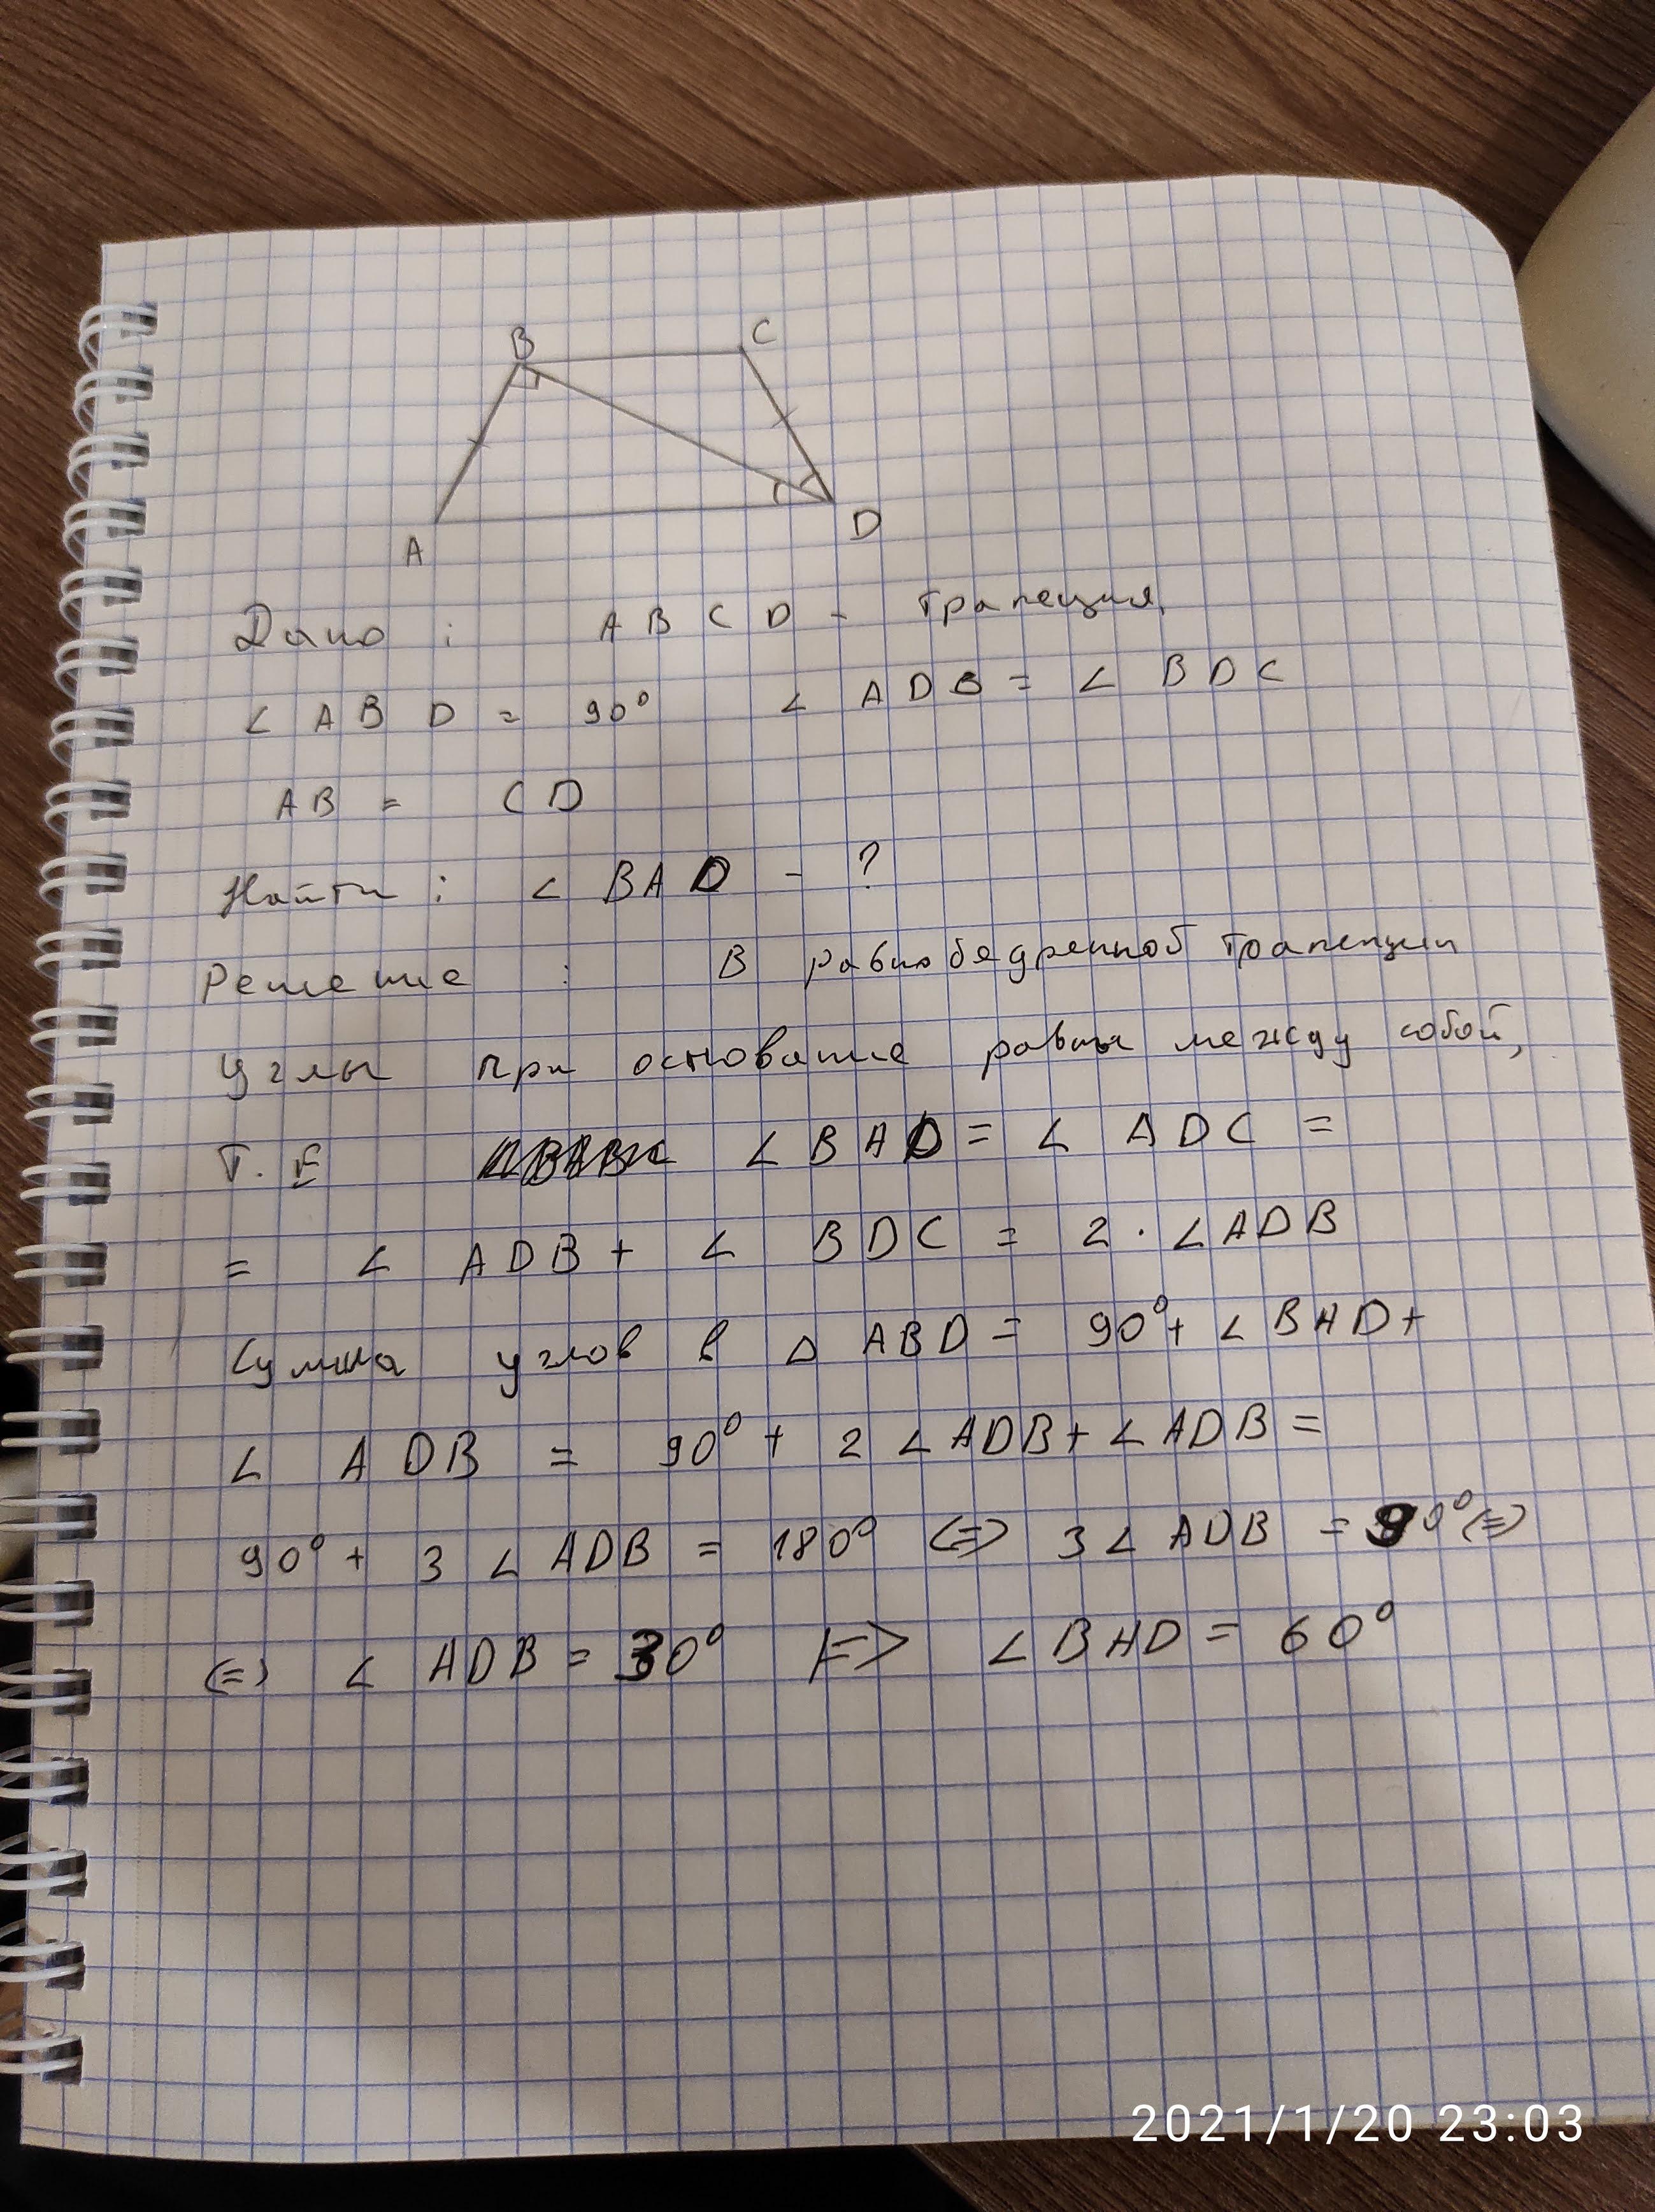 B C
A D
Дано : ABCD - трапеция,
∠ ABD = 90° ∠ ADB = ∠ BDC
AB = CD
Найти : ∠ BAD - ?
Решение : В равнобедренной трапеции
углы при основание равны между собой,
т.е ∠ BAD = ∠ ADC =
= ∠ ADB + ∠ BDC = 2 · ∠ADB
Сумма углов в △ ABD = 90° + ∠BAD +
∠ ADB = 90° + 2 ∠ADB + ∠ADB =
90° + 3 ∠ADB = 180° (=) 3∠ ADB = 90° (=)
(=) ∠ ADB = 30° |=> ∠BAD = 60°
2021/1/20 23:03